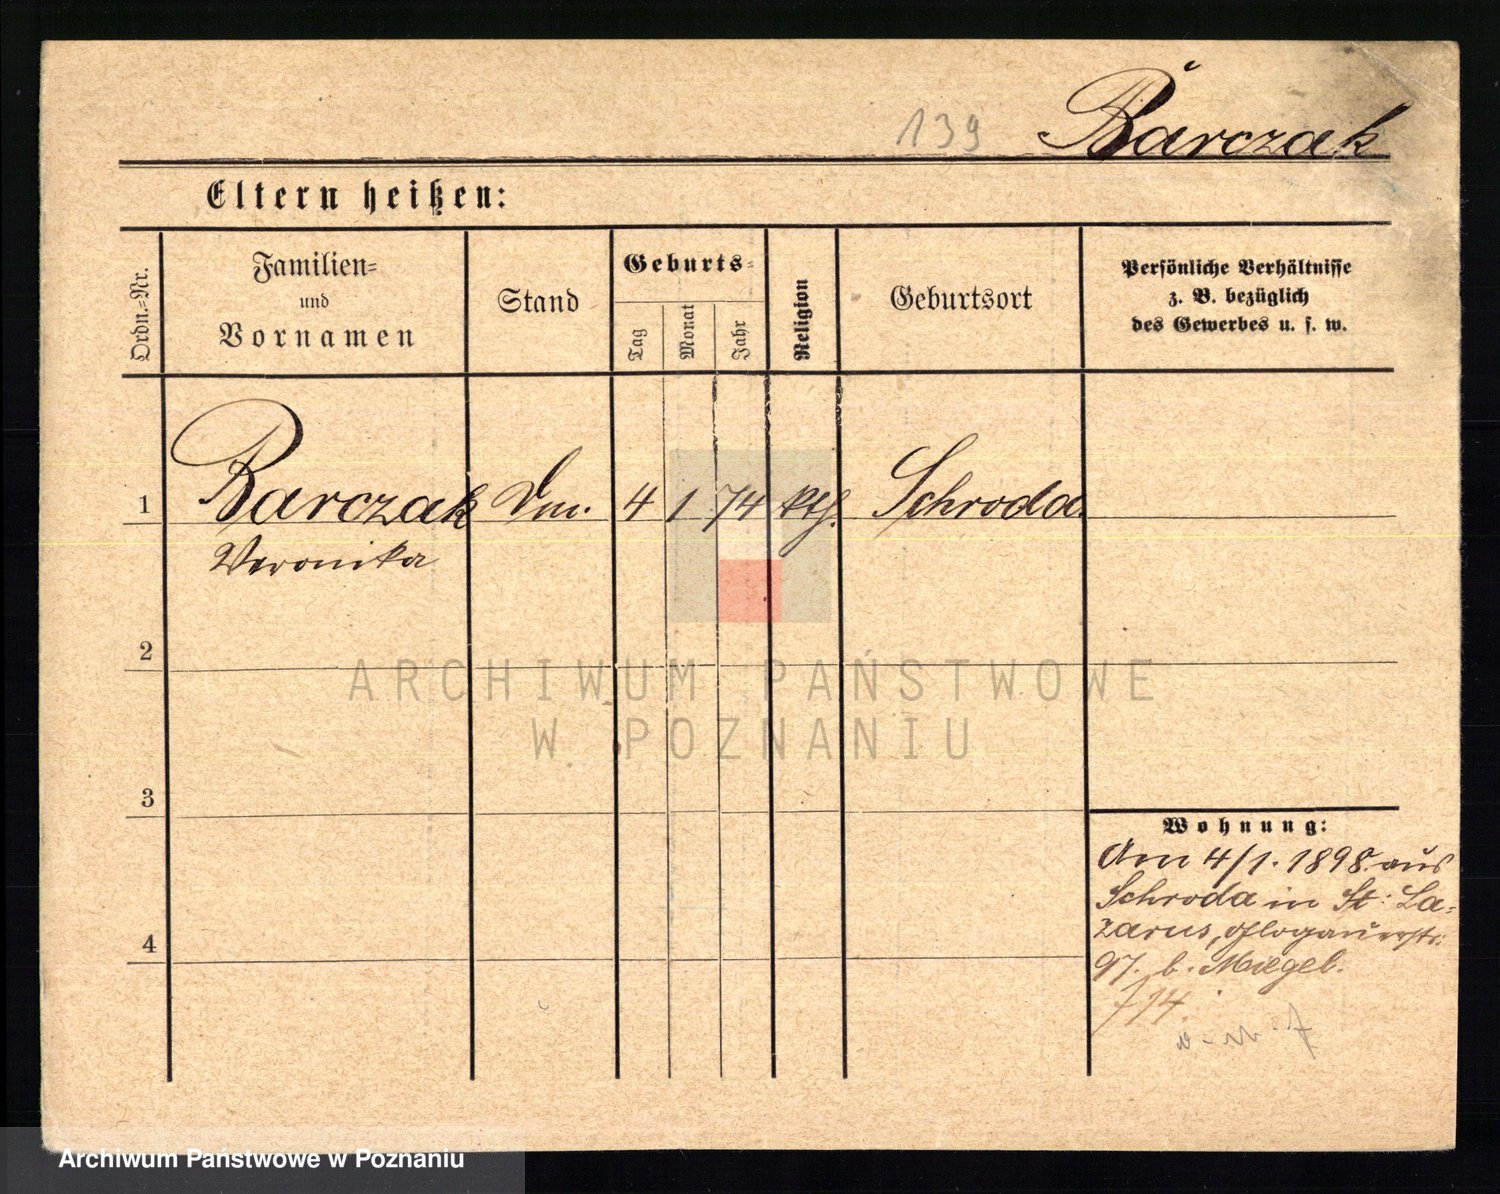 139 Barczak
Eltern heißen:
Ordn.-Nr.
Familien-
und
Vornamen
Stand
Geburts-
Tag
Monat
Jahr
Religion
Geburtsort
Persönliche Verhältnisse
z. B. bezüglich
des Gewerbes u. s. w.
1 Barczak 4 1 74 kth. Schroda
Veronika
2
ARCHIWUM PAŃSTWOWE
W POZNANIU
3
4
Wohnung:
Am 4/1. 1898 aus
Schroda in St: La-
zarus, Glogauerstr.
97. b. Miegel.
Archiwum Państwowe w Poznaniu